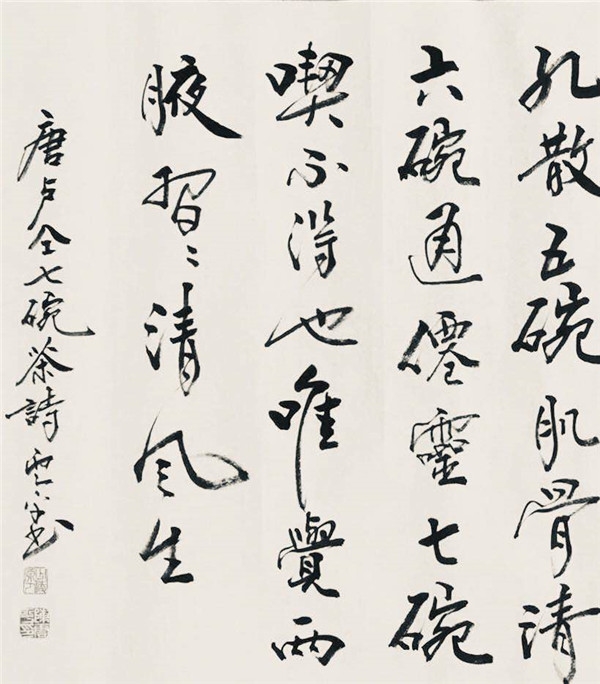 孔散五碗肌骨清
六碗通僊靈七碗
喫不得也唯覺两
腋習〻清風生
唐卢仝七碗茶詩